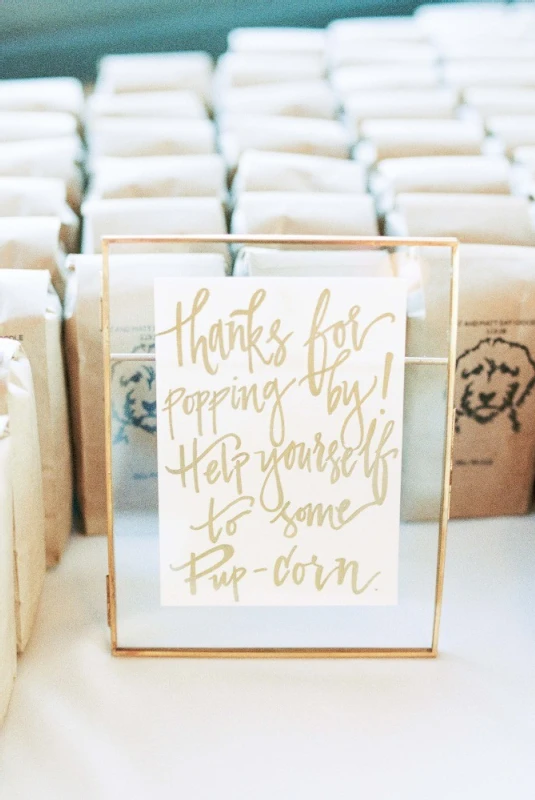 thanks for
popping by!
Help yourself
to some
Pup-corn.